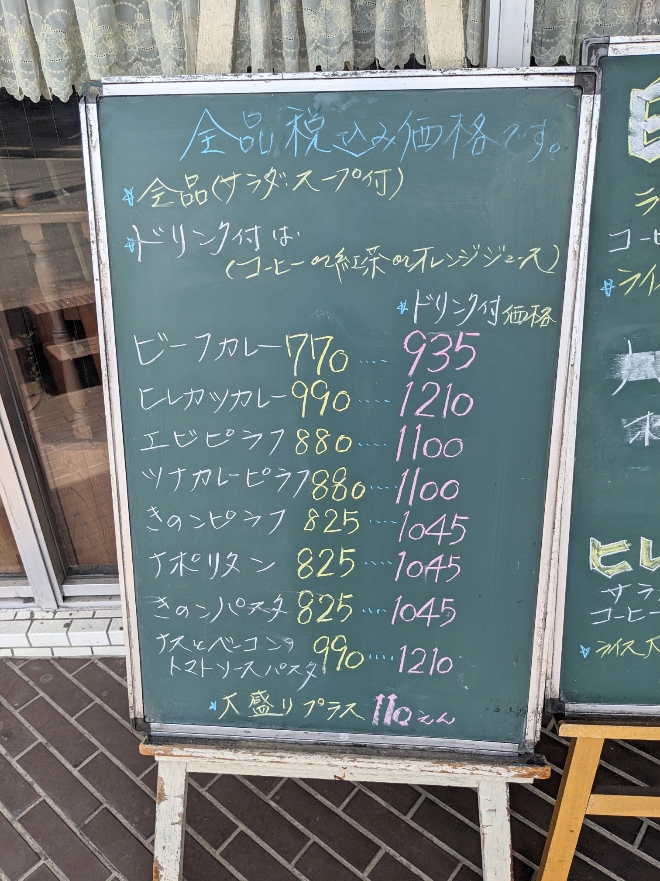 全品税込み価格です。
全品(サラダ・スープ付)
ドリンク付は
(コーヒー or 紅茶 or オレンジジュース)
ドリンク付価格
ビーフカレー 770 .... 935
ヒレカツカレー 990 .... 1210
エビピラフ 880 .... 1100
ツナカレーピラフ 880 .... 1100
きのこピラフ 825 .... 1045
ナポリタン 825 .... 1045
きのこパスタ 825 .... 1045
ナスとベーコンの
トマトソースパスタ 990 .... 1210
大盛りプラス 110えん
ヒレ
サラ
コーヒー
ライス大